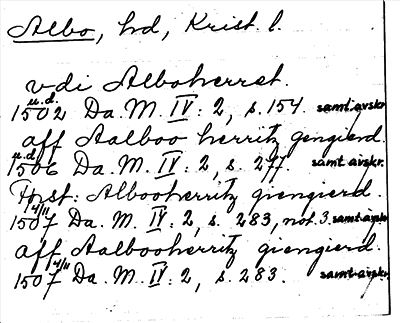 Albo, hd, Krist. l.
vdi Alboherret.
u.d.
1502 Da. M. IV: 2, s. 154. samt avskr.
aff Aalboo herritz gengierd.
u.d.
1506 Da. M. IV: 2, s. 277. samt avskr.
Hust: Albooherritz giengierd.
4/11
1507 Da. M. IV: 2, s. 283, not 3. samt avskr.
aff Aalbooherritz giengierd.
4/11
1507 Da. M. IV: 2, s. 283. samt avskr.